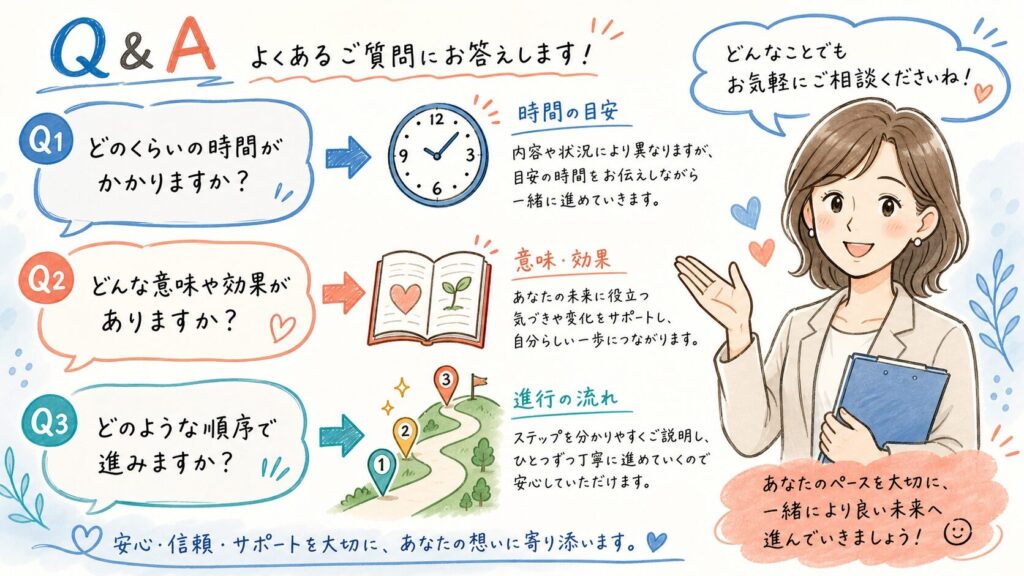 Q & A
よくあるご質問にお答えします!
Q1
どのくらいの時間が
かかりますか?
12
3
6
9
時間の目安
内容や状況により異なりますが、
目安の時間をお伝えしながら
一緒に進めていきます。
Q2
どんな意味や効果が
ありますか?
意味・効果
あなたの未来に役立つ
気づきや変化をサポートし、
自分らしい一歩につながります。
Q3
どのような順序で
進みますか?
1
2
3
進行の流れ
ステップを分かりやすくご説明し、
ひとつずつ丁寧に進めていくので
安心していただけます。
どんなことでも
お気軽にご相談くださいね!
あなたのペースを大切に、
一緒により良い未来へ
進んでいきましょう!
安心・信頼・サポートを大切に、あなたの想いに寄り添います。